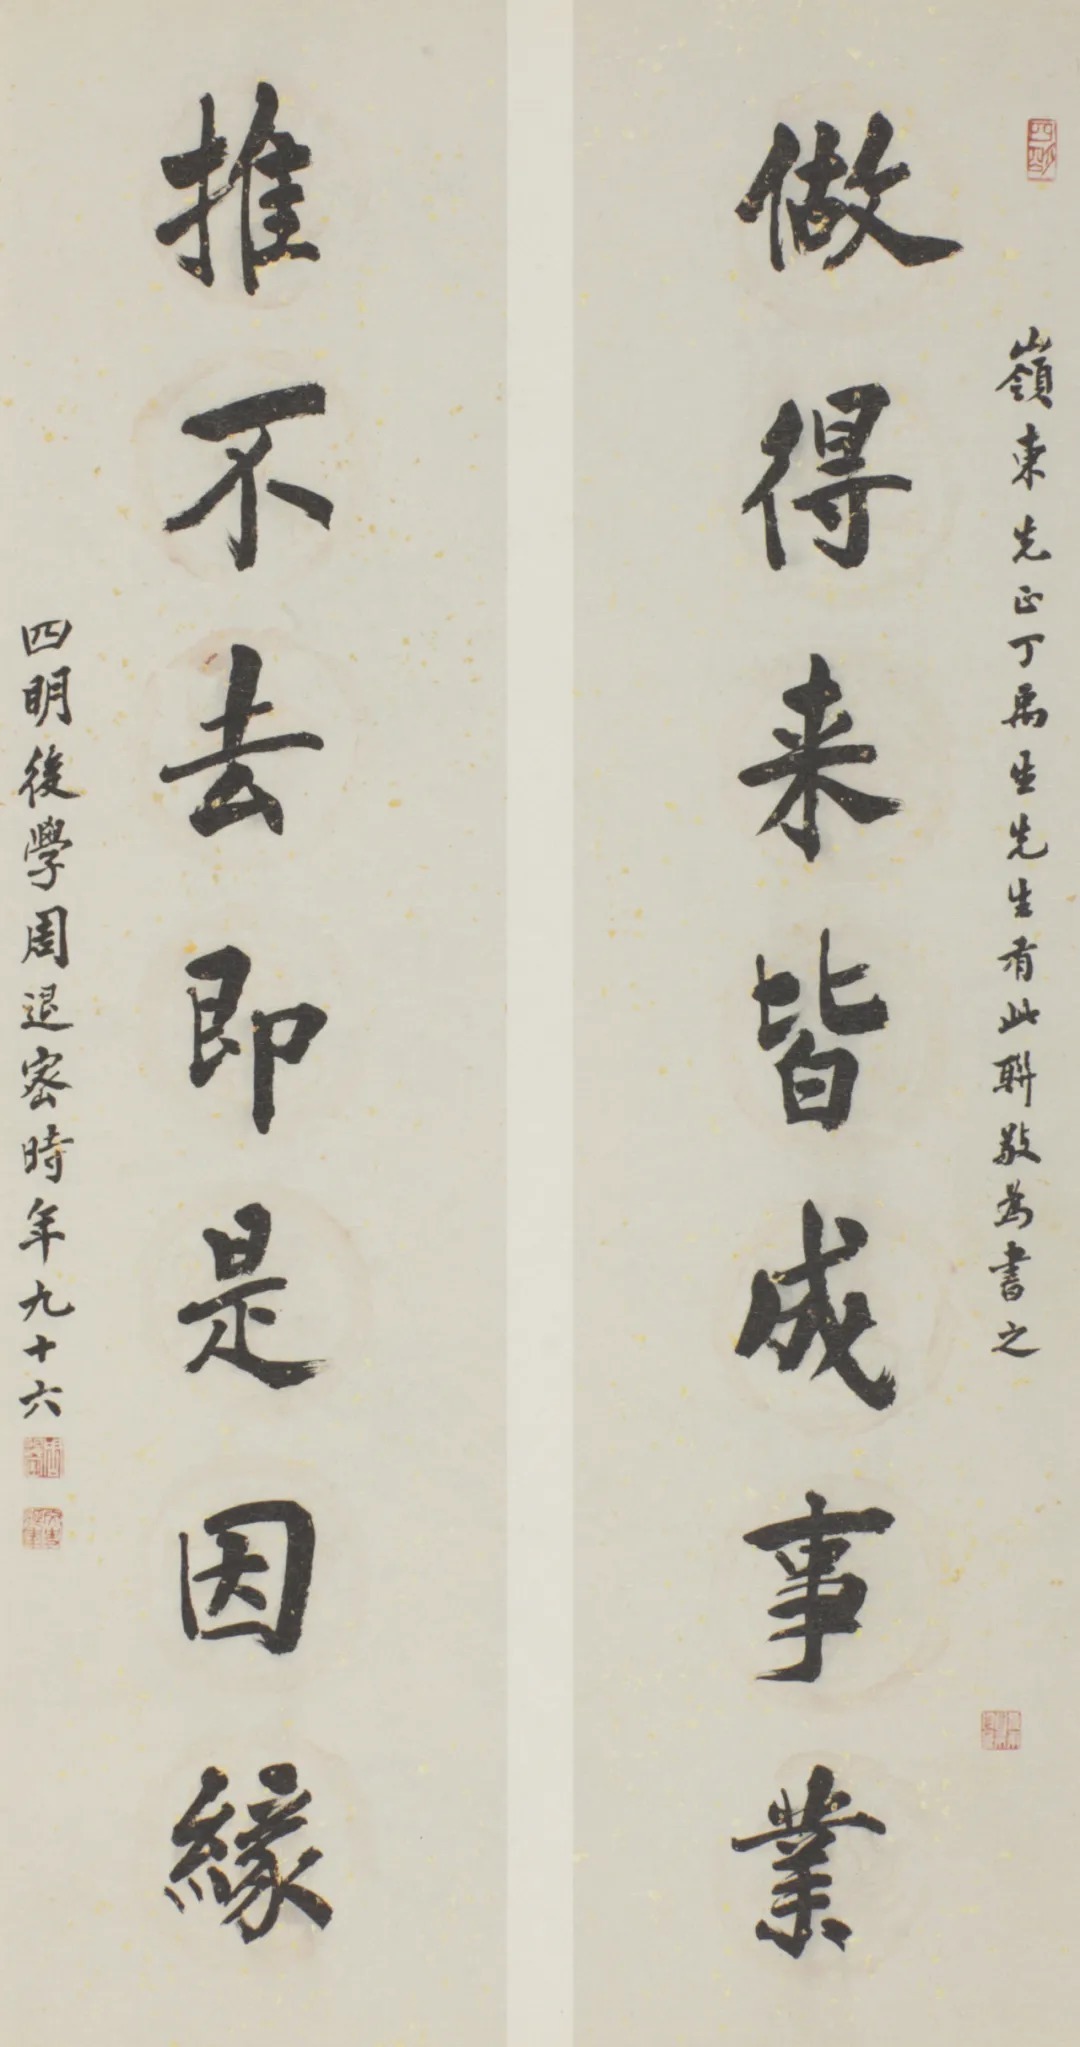 嶺東先正丁禹生先生有此聯敬為書之
做得来皆成事業
推不去即是因緣
四明後學周退密時年九十六